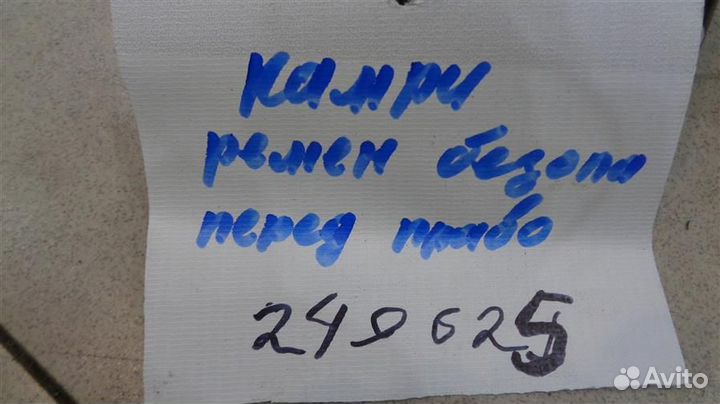 Камри
ремен безопа
перед право
249625
Avito